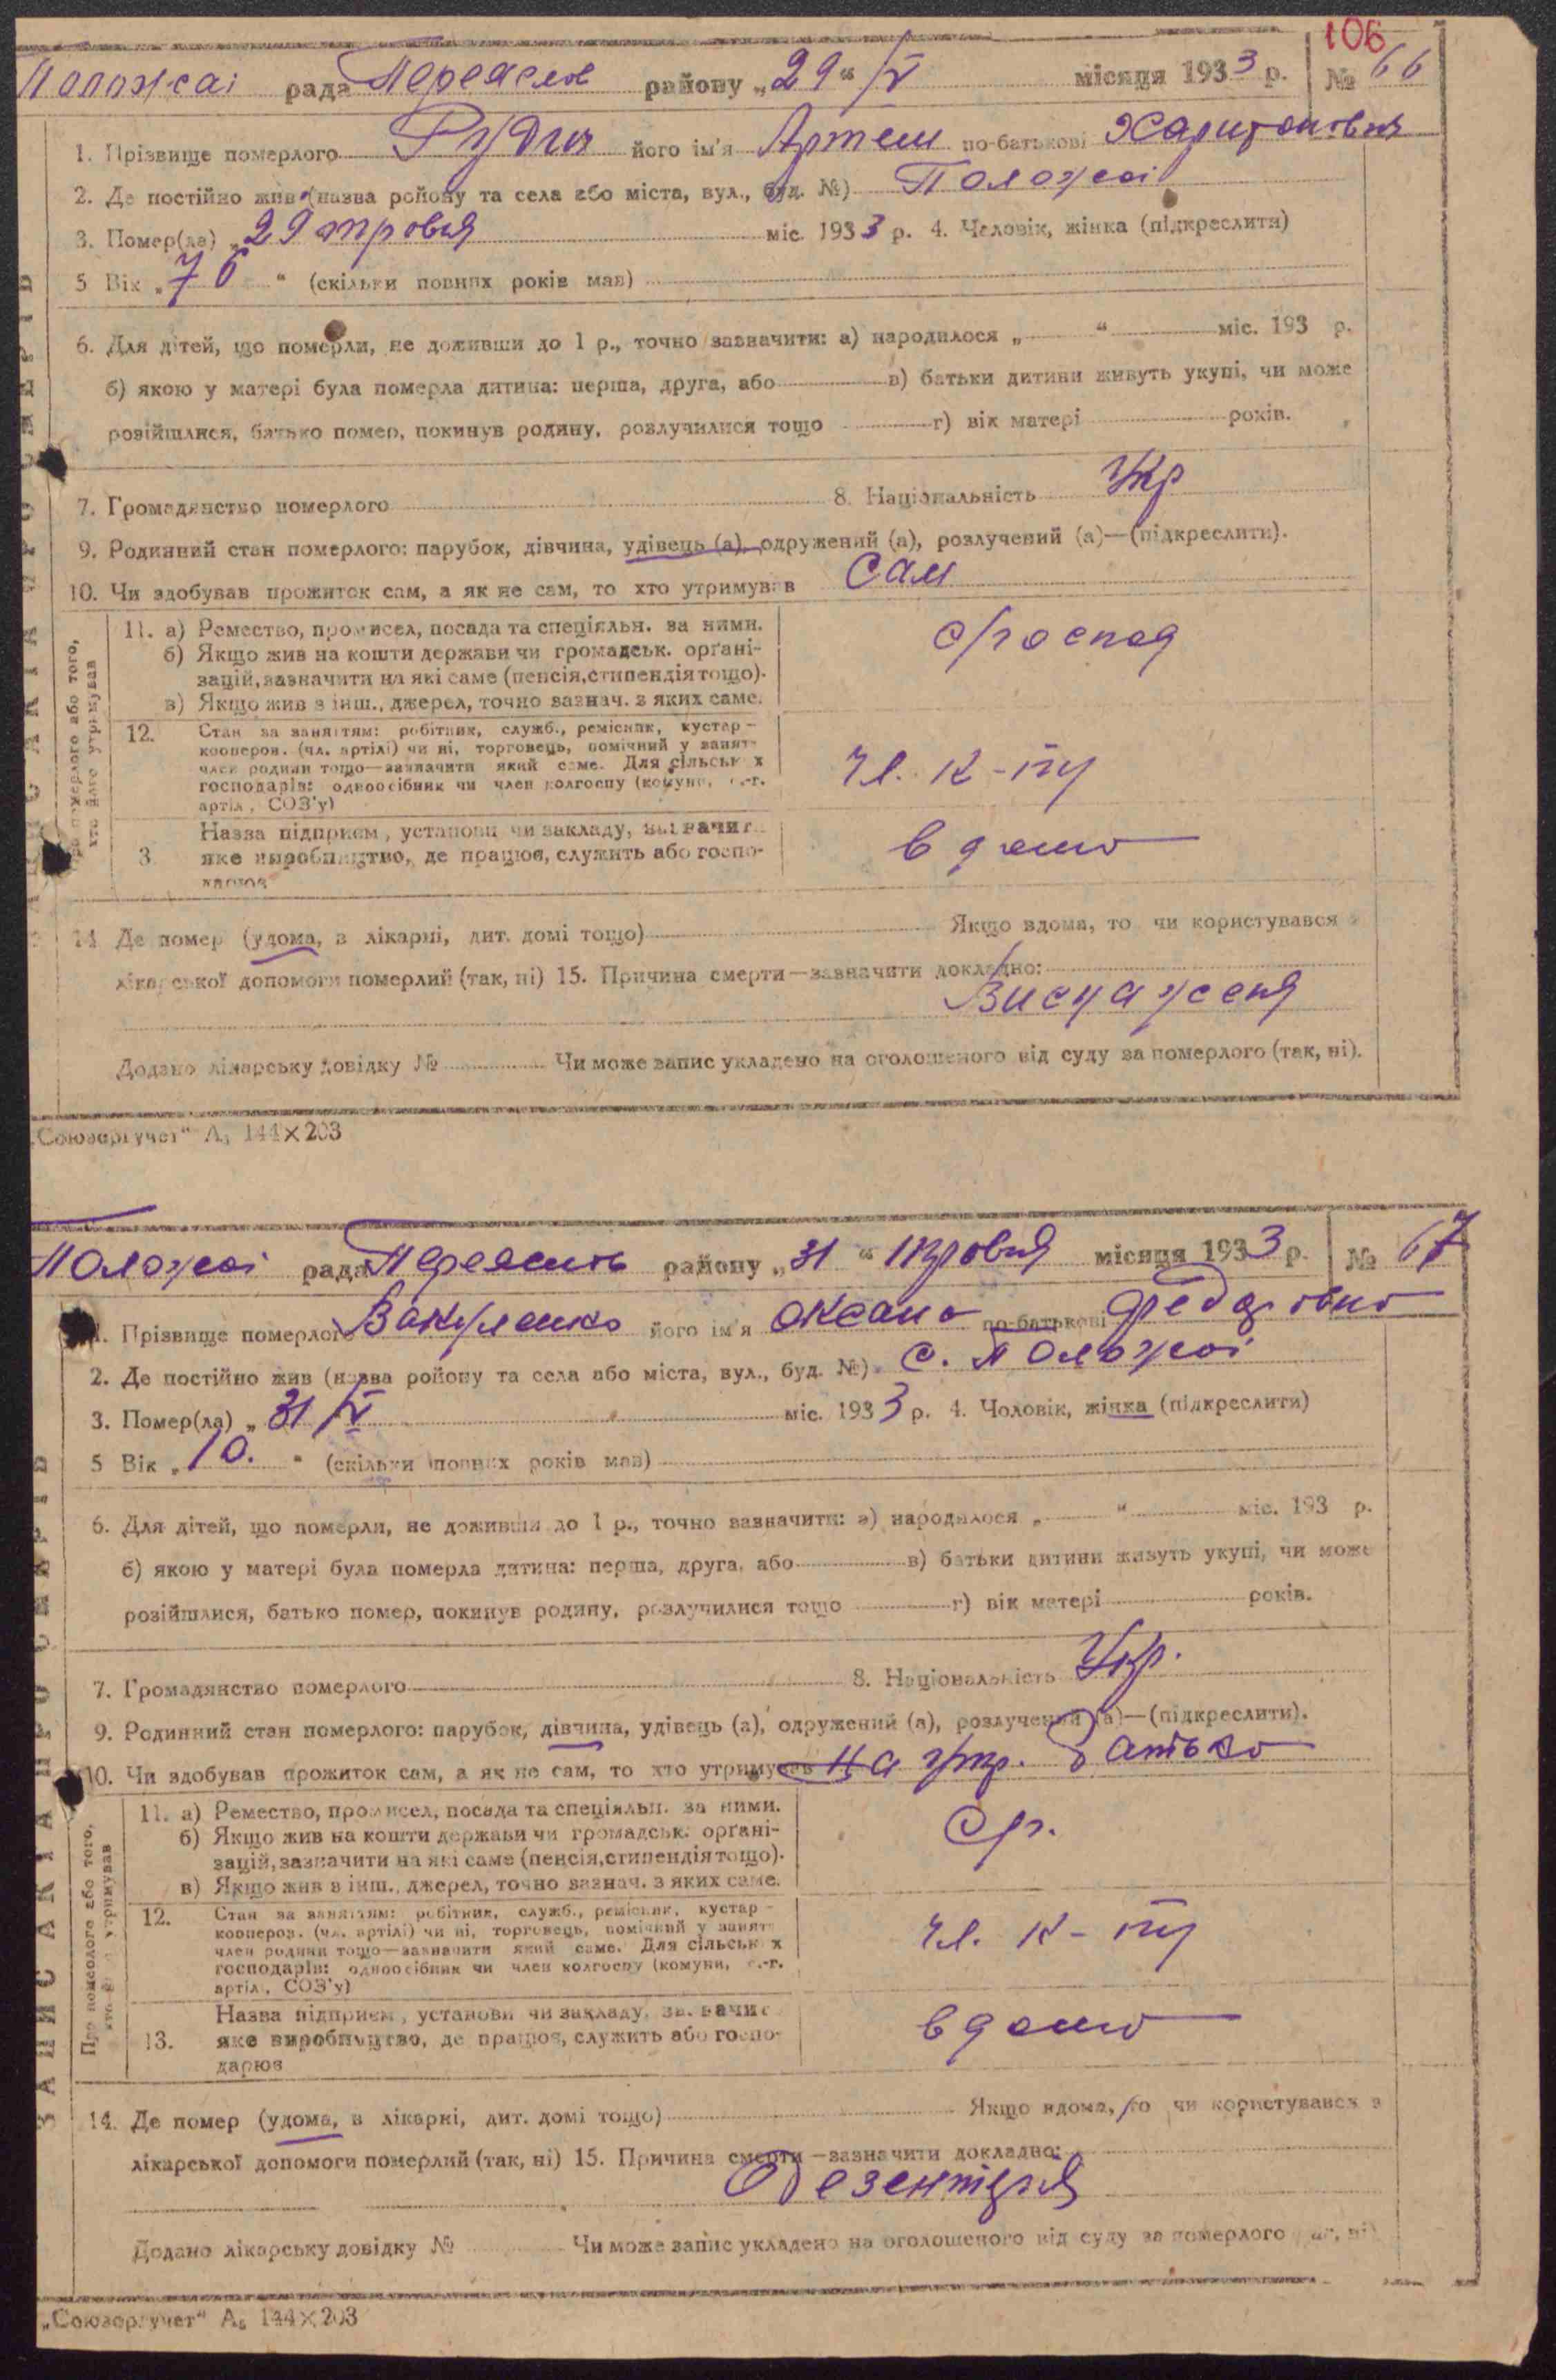 106
Положаі рада Переяслов району „29“ /V місяця 1933 р. № 66
1. Прізвище померлого Рудич його ім'я Артем по-батькові Харитонович
2. Де постійно жив (назва району та села або міста, вул., буд. №) Положаі
3. Помер(ла) „29 тровня міс. 1933 р. 4. Чоловік, жінка (підкреслити)
5 Вік „76“ (скільки повних років мав)
6. Для дітей, що померли, не доживши до 1 р., точно зазначити: а) народилося „ “ міс. 193 р.
б) якою у матері була померла дитина: перша, друга, або в) батьки дитини живуть укупі, чи може
розійшлися, батько помер, покинув родину, розлучилися тощо г) вік матері років.
7. Громадянство померлого 8. Національність Укр
9. Родинний стан померлого: парубок, дівчина, удівець (а), одружений (а), розлучений (а)—(підкреслити).
10. Чи здобував прожиток сам, а як не сам, то хто утримував Сам
11. а) Ремество, промисел, посада та спеціяльн. за ними.
б) Якщо жив на кошти держави чи громадськ. орґані-
зацій, зазначити на які саме (пенсія, стипендія тощо).
в) Якщо жив з інш., джерел, точно зазнач. з яких саме.
12. Стан за заняттям: робітник, служб., ремісник, кустар-
коопеpов. (чл. артілі) чи ні, торговець, помічний у занят
член родини тощо—зазначити який саме. Для сільськ х
господарів: одноосібник чи член колгоспу (комуни, с.-г.
артіл, СОЗ'у)
чл. к-пу
Назва підприєм, установи чи закладу, зазначит
3 яке виробництво, де працює, служить або госпо-
дарює
вдома
14 Де помер (удома, в лікарні, дит. домі тощо) Якщо вдома, то чи користувався з
лікарської допомоги померлий (так, ні) 15. Причина смерти—зазначити докладно:
Виснаженя
Додано лікарську довідку № Чи може запис укладено на оголошеного від суду за померлого (так, ні).
„Союзоргучет“ А₅ 144×203
Положаі рада Переяслв району „31“ тровня місяця 1933 р. № 67
1. Прізвище померлого Вакуленко його ім'я Оксана по-батькові Федоровна
2. Де постійно жив (назва району та села або міста, вул., буд. №) с. Положаі
3. Помер(ла) „31 /V міс. 1933 р. 4. Чоловік, жінка (підкреслити)
5 Вік „10.“ (скільки повних років мав)
6. Для дітей, що померли, не доживши до 1 р., точно зазначити: а) народилося „ “ міс. 193 р.
б) якою у матері була померла дитина: перша, друга, або в) батьки дитини живуть укупі, чи може
розійшлися, батько помер, покинув родину, розлучилися тощо г) вік матері років.
7. Громадянство померлого 8. Національність Укр.
9. Родинний стан померлого: парубок, дівчина, удівець (а), одружений (а), розлучений (а)—(підкреслити).
10. Чи здобував прожиток сам, а як не сам, то хто утримував На утр. батько
11. а) Ремество, промисел, посада та спеціяльн. за ними.
б) Якщо жив на кошти держави чи громадськ. орґані-
зацій, зазначити на які саме (пенсія, стипендія тощо).
в) Якщо жив з інш., джерел, точно зазнач. з яких саме.
12. Стан за заняттям: робітник, служб., ремісник, кустар-
коопеpов. (чл. артілі) чи ні, торговець, помічний у занят
член родини тощо—зазначити який саме. Для сільськ х
господарів: одноосібник чи член колгоспу (комуни, с.-г.
артіл, СОЗ'у)
чл. к-пу
Назва підприєм, установи чи закладу, зазначит
13. яке виробництво, де працює, служить або госпо-
дарює
вдома
14. Де помер (удома, в лікарні, дит. домі тощо) Якщо вдома, то чи користувався з
лікарської допомоги померлий (так, ні) 15. Причина смерти—зазначити докладно:
Дезентерія
Додано лікарську довідку № Чи може запис укладено на оголошеного від суду за померлого так, ні)
„Союзоргучет“ А₅ 144×203